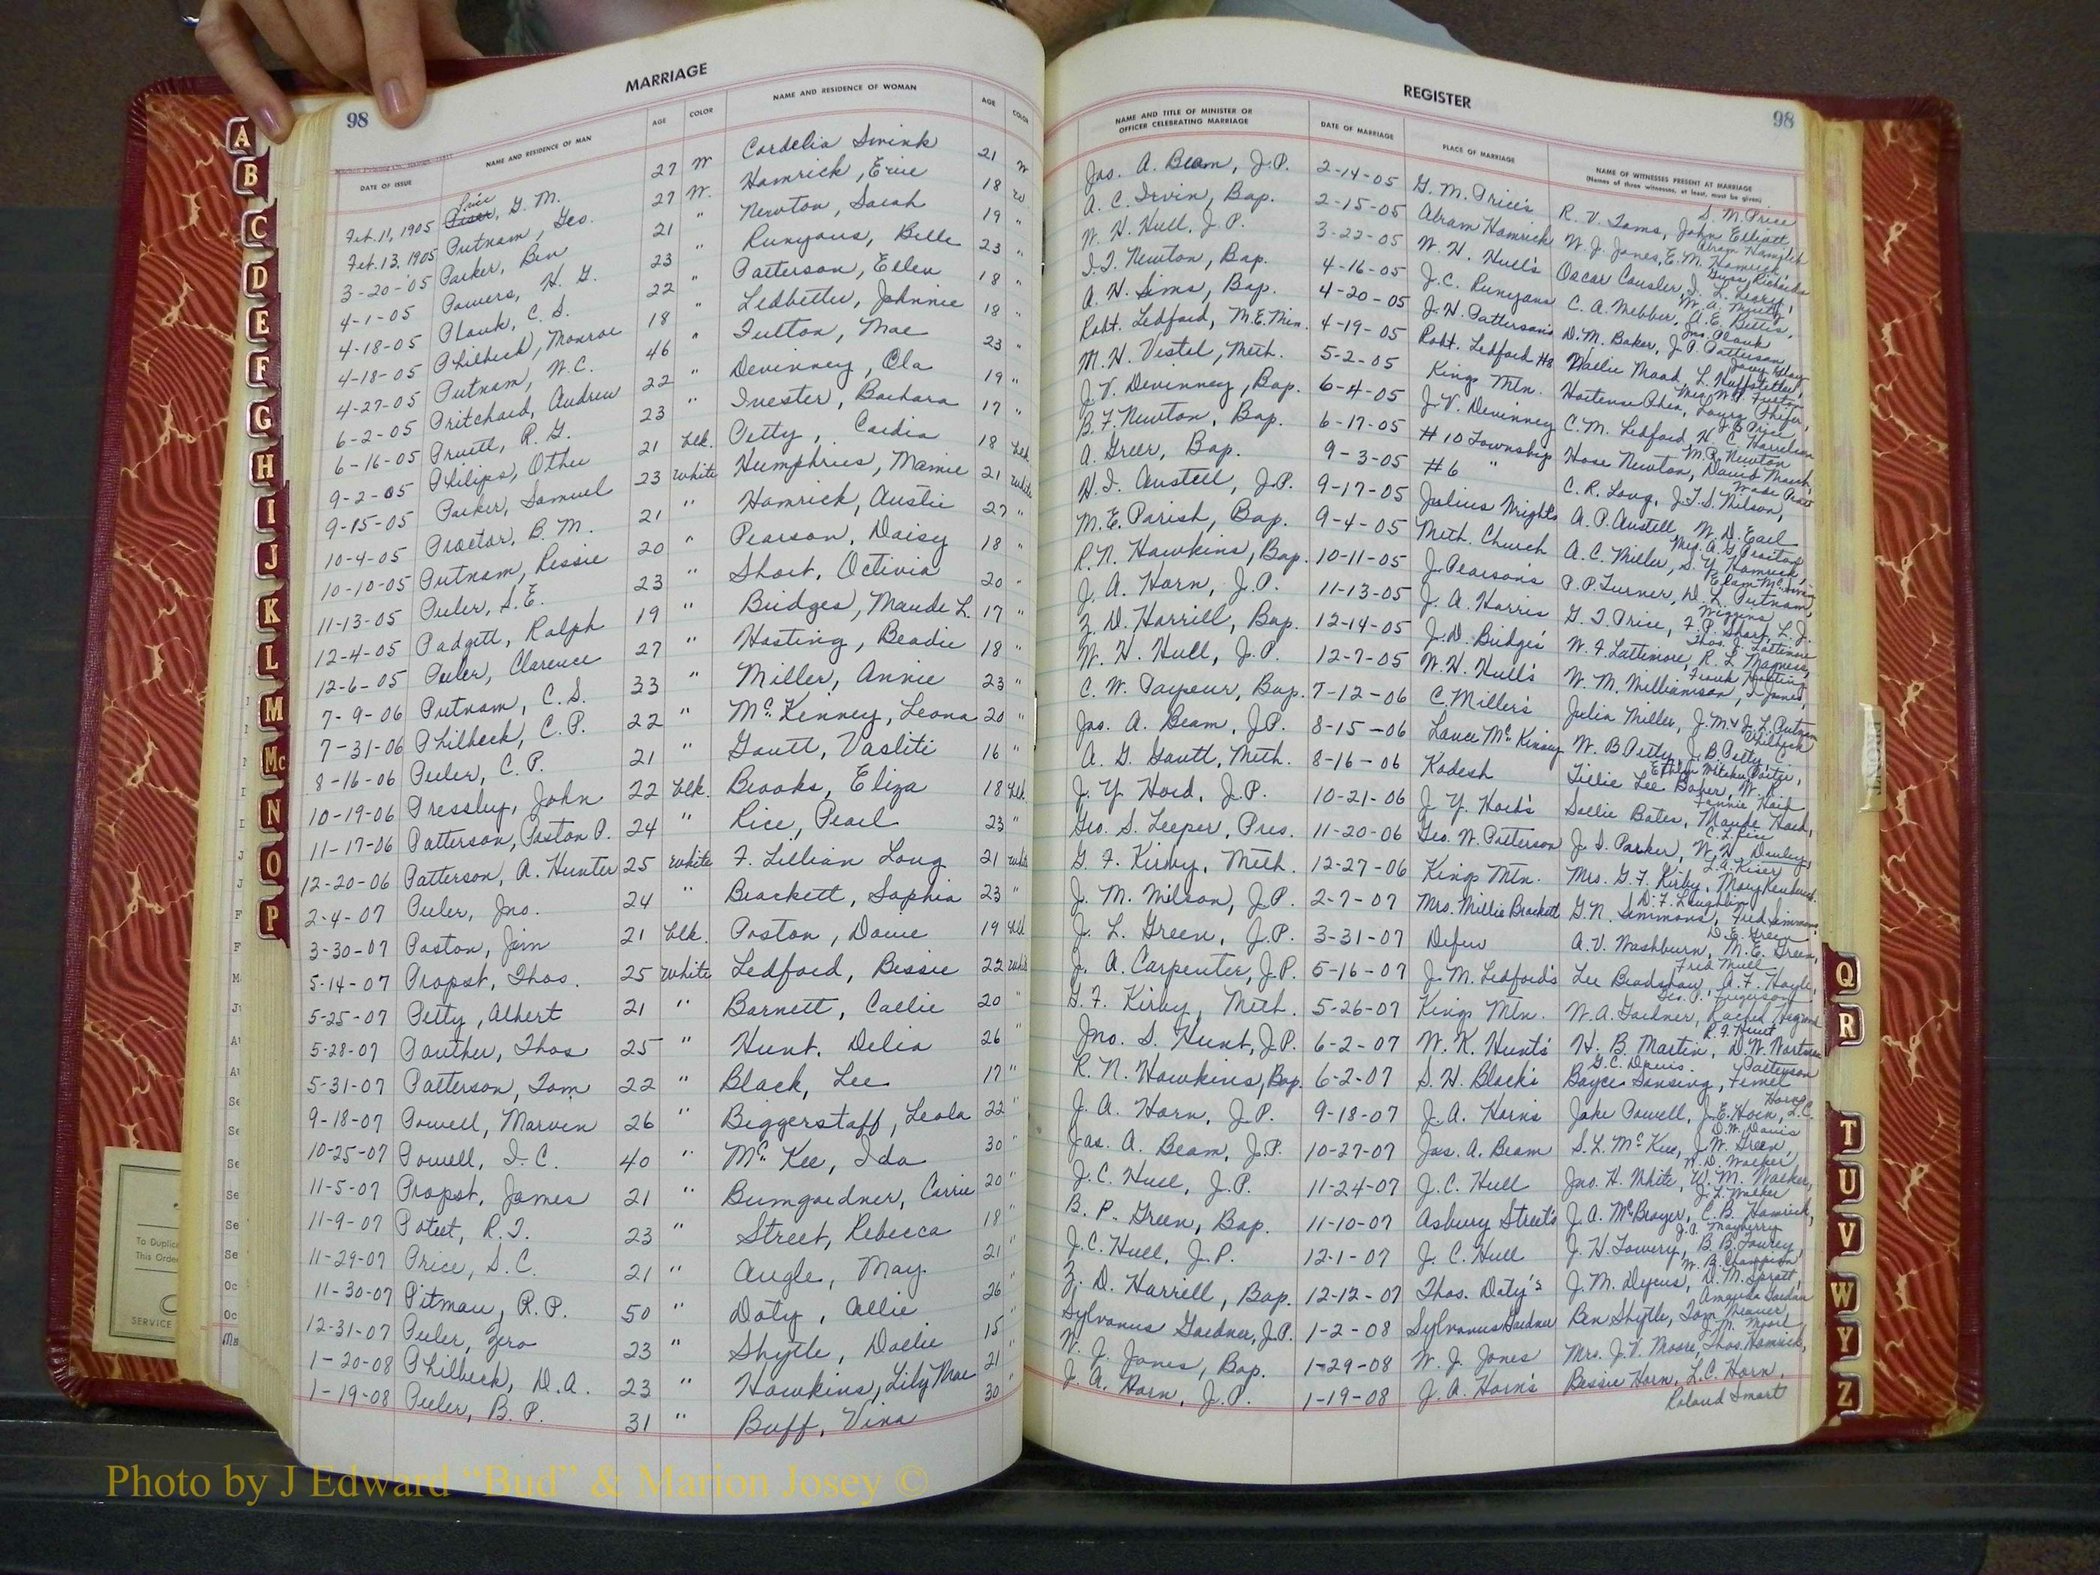 MARRIAGE
98
DATE OF ISSUE NAME AND RESIDENCE OF MAN AGE COLOR NAME AND RESIDENCE OF WOMAN AGE COLOR
Feb. 11, 1905 Price, G. M. 27 W Cordelia Swink 21 W
Feb. 13, 1905 Putnam, Geo. 27 W. Hamrick, Erie 18 W
3-20-'05 Parker, Ben 21 " Newton, Sarah 19 "
4-1-05 Powers, H. G. 23 " Runyans, Belle 23 "
4-18-05 Plonk, C. S. 22 " Patterson, Ellen 18 "
4-18-05 Philbeck, Monroe 18 " Ledbetter, Johnnie 18 "
4-27-05 Putnam, W. C. 46 " Fulton, Mae 23 "
6-2-05 Pritchard, Andrew 22 " Devinney, Ola 19 "
6-16-05 Pruett, R. G. 23 " Ivester, Barbara 17 "
9-2-05 Philips, Other 21 blk. Petty, Cardia 18 blk
9-15-05 Parker, Samuel 23 white Humphries, Mamie 21 white
10-4-05 Proctor, B. M. 21 " Hamrick, Austie 27 "
10-10-05 Putnam, Ressie 20 " Pearson, Daisy 18 "
11-13-05 Peeler, S. E. 23 " Short, Octivia 20 "
12-4-05 Padgett, Ralph 19 " Bridges, Maude L. 17 "
12-6-05 Peeler, Clarence 27 " Hasting, Beadie 18 "
7-9-06 Putnam, C. S. 33 " Miller, Annie 23 "
7-31-06 Philbeck, C. P. 22 " McKenney, Leona 20 "
8-16-06 Peeler, C. P. 21 " Gantt, Vasliti 16 "
10-19-06 Pressley, John 22 blk. Brooks, Eliza 18 blk
11-17-06 Patterson, Poston P. 24 " Rice, Pearl 23 "
12-20-06 Patterson, A. Hunter 25 white F. Lillian Long 21 white
2-4-07 Peeler, Jno. 24 " Brackett, Sophia 23 "
3-30-07 Poston, Jim 21 blk. Poston, Dovie 19 blk
5-14-07 Propst, Thos. 25 white Ledford, Bessie 22 white
5-25-07 Petty, Albert 21 " Barnett, Callie 20 "
5-28-07 Panther, Thos 25 " Hunt, Delia 26 "
5-31-07 Patterson, Tom 22 " Black, Lee 17 "
9-18-07 Powell, Marven 26 " Biggerstaff, Leola 22 "
10-25-07 Powell, I. C. 40 " McKee, Ida 30 "
11-5-07 Propst, James 21 " Bumgardner, Carrie 20 "
11-9-07 Poteet, R. T. 23 " Street, Rebecca 18 "
11-29-07 Price, S. C. 21 " Angle, May 21 "
11-30-07 Pitman, R. P. 50 " Doty, Allie 26 "
12-31-07 Peeler, Zero 23 " Shytle, Dollie 15 "
1-20-08 Philbeck, D. A. 23 " Hawkins, Lily Mae 21 "
1-19-08 Peeler, B. P. 31 " Buff, Vina 30 "
REGISTER
98
NAME AND TITLE OF MINISTER OR OFFICER CELEBRATING MARRIAGE DATE OF MARRIAGE PLACE OF MARRIAGE NAME OF WITNESSES PRESENT AT MARRIAGE
(Names of three witnesses, at least, must be given)
Jas. A. Beam, J.P. 2-14-05 G. M. Price's R. V. Toms, John Elliott S. M. Price
A. C. Irvin, Bap. 2-15-05 Abram Hamrick W. J. Jones, E. M. Hamrick,
W. H. Hull, J. P. 3-22-05 W. H. Hull's Oscar Causler,
I. T. Newton, Bap. 4-16-05 J. C. Runyans C. A. Webber, A. E. Bettis,
A. H. Sims, Bap. 4-20-05 J. H. Patterson's D. M. Baker, J. P. Patterson
Robt. Ledford, M.E. Min. 4-19-05 Robt. Ledford
M. H. Vestal, Meth. 5-2-05 Kings Mtn.
J. V. Devinney, Bap. 6-4-05 J. V. Devinney C. M. Ledford,
B. F. Newton, Bap. 6-17-05 #10 Township Hose Newton,
A. Greer, Bap. 9-3-05 #6 " C. R. Long, J. T. S. Wilson,
H. I. Austell, J.P. 9-17-05 Julius Wrights A. P. Austell, W. D. Earl
M. E. Parish, Bap. 9-4-05 Meth. Church A. C. Miller, S. Y. Hamrick,
R. N. Hawkins, Bap. 10-11-05 J. Pearson's P. P. Turner, D. L. Putnam,
J. A. Horn, J.P. 11-13-05 J. A. Harris G. T. Price,
Z. D. Harrill, Bap. 12-14-05 J. D. Bridge's W. F. Lattimore, R. L. Magness,
W. H. Hull, J.P. 12-7-05 W. H. Hull's W. M. Williamson,
C. W. Payseur, Bap. 7-12-06 C. Miller's Julia Miller,
Jas. A. Beam, J.P. 8-15-06 Lance McKinney W. B. Petty, J. B. Petty,
A. G. Gantt, Meth. 8-16-06 Kadesh Tillie Lee Baber,
J. Y. Hord, J.P. 10-21-06 J. Y. Hord's Sallie Bates, Maude Hord,
Geo. S. Leeper, Pres. 11-20-06 Geo. W. Patterson J. S. Parker,
G. F. Kirby, Meth. 12-27-06 Kings Mtn. Mrs. G. F. Kirby,
J. M. Wilson, J.P. 2-7-07 Mrs. Millie Brackett G. N. Simmons, Fred Simmons
J. L. Green, J.P. 3-31-07 A. V. Washburn, M. E. Green,
J. A. Carpenter, J.P. 5-16-07 J. M. Ledford's Lee Bradshaw, A. F. Hoyle,
G. F. Kirby, Meth. 5-26-07 Kings Mtn. W. A. Gardner,
Jno. S. Hunt, J.P. 6-2-07 W. K. Hunt's H. B. Martin,
R. N. Hawkins, Bap. 6-2-07 S. H. Black's Boyce Sansing,
J. A. Horn, J.P. 9-18-07 J. A. Horn's Jake Powell, J. E. Horn,
Jas. A. Beam, J.P. 10-27-07 Jas. A. Beam S. L. McKee, J. W. Green,
J. C. Hull, J.P. 11-24-07 J. C. Hull Jno. H. White, W. M. Walker,
B. P. Green, Bap. 11-10-07 Asbury Street's J. A. McBrayer, C. B. Hamrick,
J. C. Hull, J.P. 12-1-07 J. C. Hull J. H. Lowery,
Z. D. Harrill, Bap. 12-12-07 Thos. Doty's J. M. Dycus, D. M. Spratt,
Sylvanus Gardner, J.P. 1-2-08 Sylvanus Gardner Ben Shytle, Tom Weaver,
W. J. Jones, Bap. 1-29-08 W. J. Jones Mrs. J. V. Moore, Thos. Hamrick,
J. A. Horn, J.P. 1-19-08 J. A. Horn's Bessie Horn, L. C. Horn,
Roland Smart
A
B
C
D
E
F
G
H
I
J
K
L
M
Mc
N
O
P
Q
R
T
U
V
W
Y
Z
To Duplic
This Order
SERVICE
Photo by J Edward “Bud” & Marion Josey ©